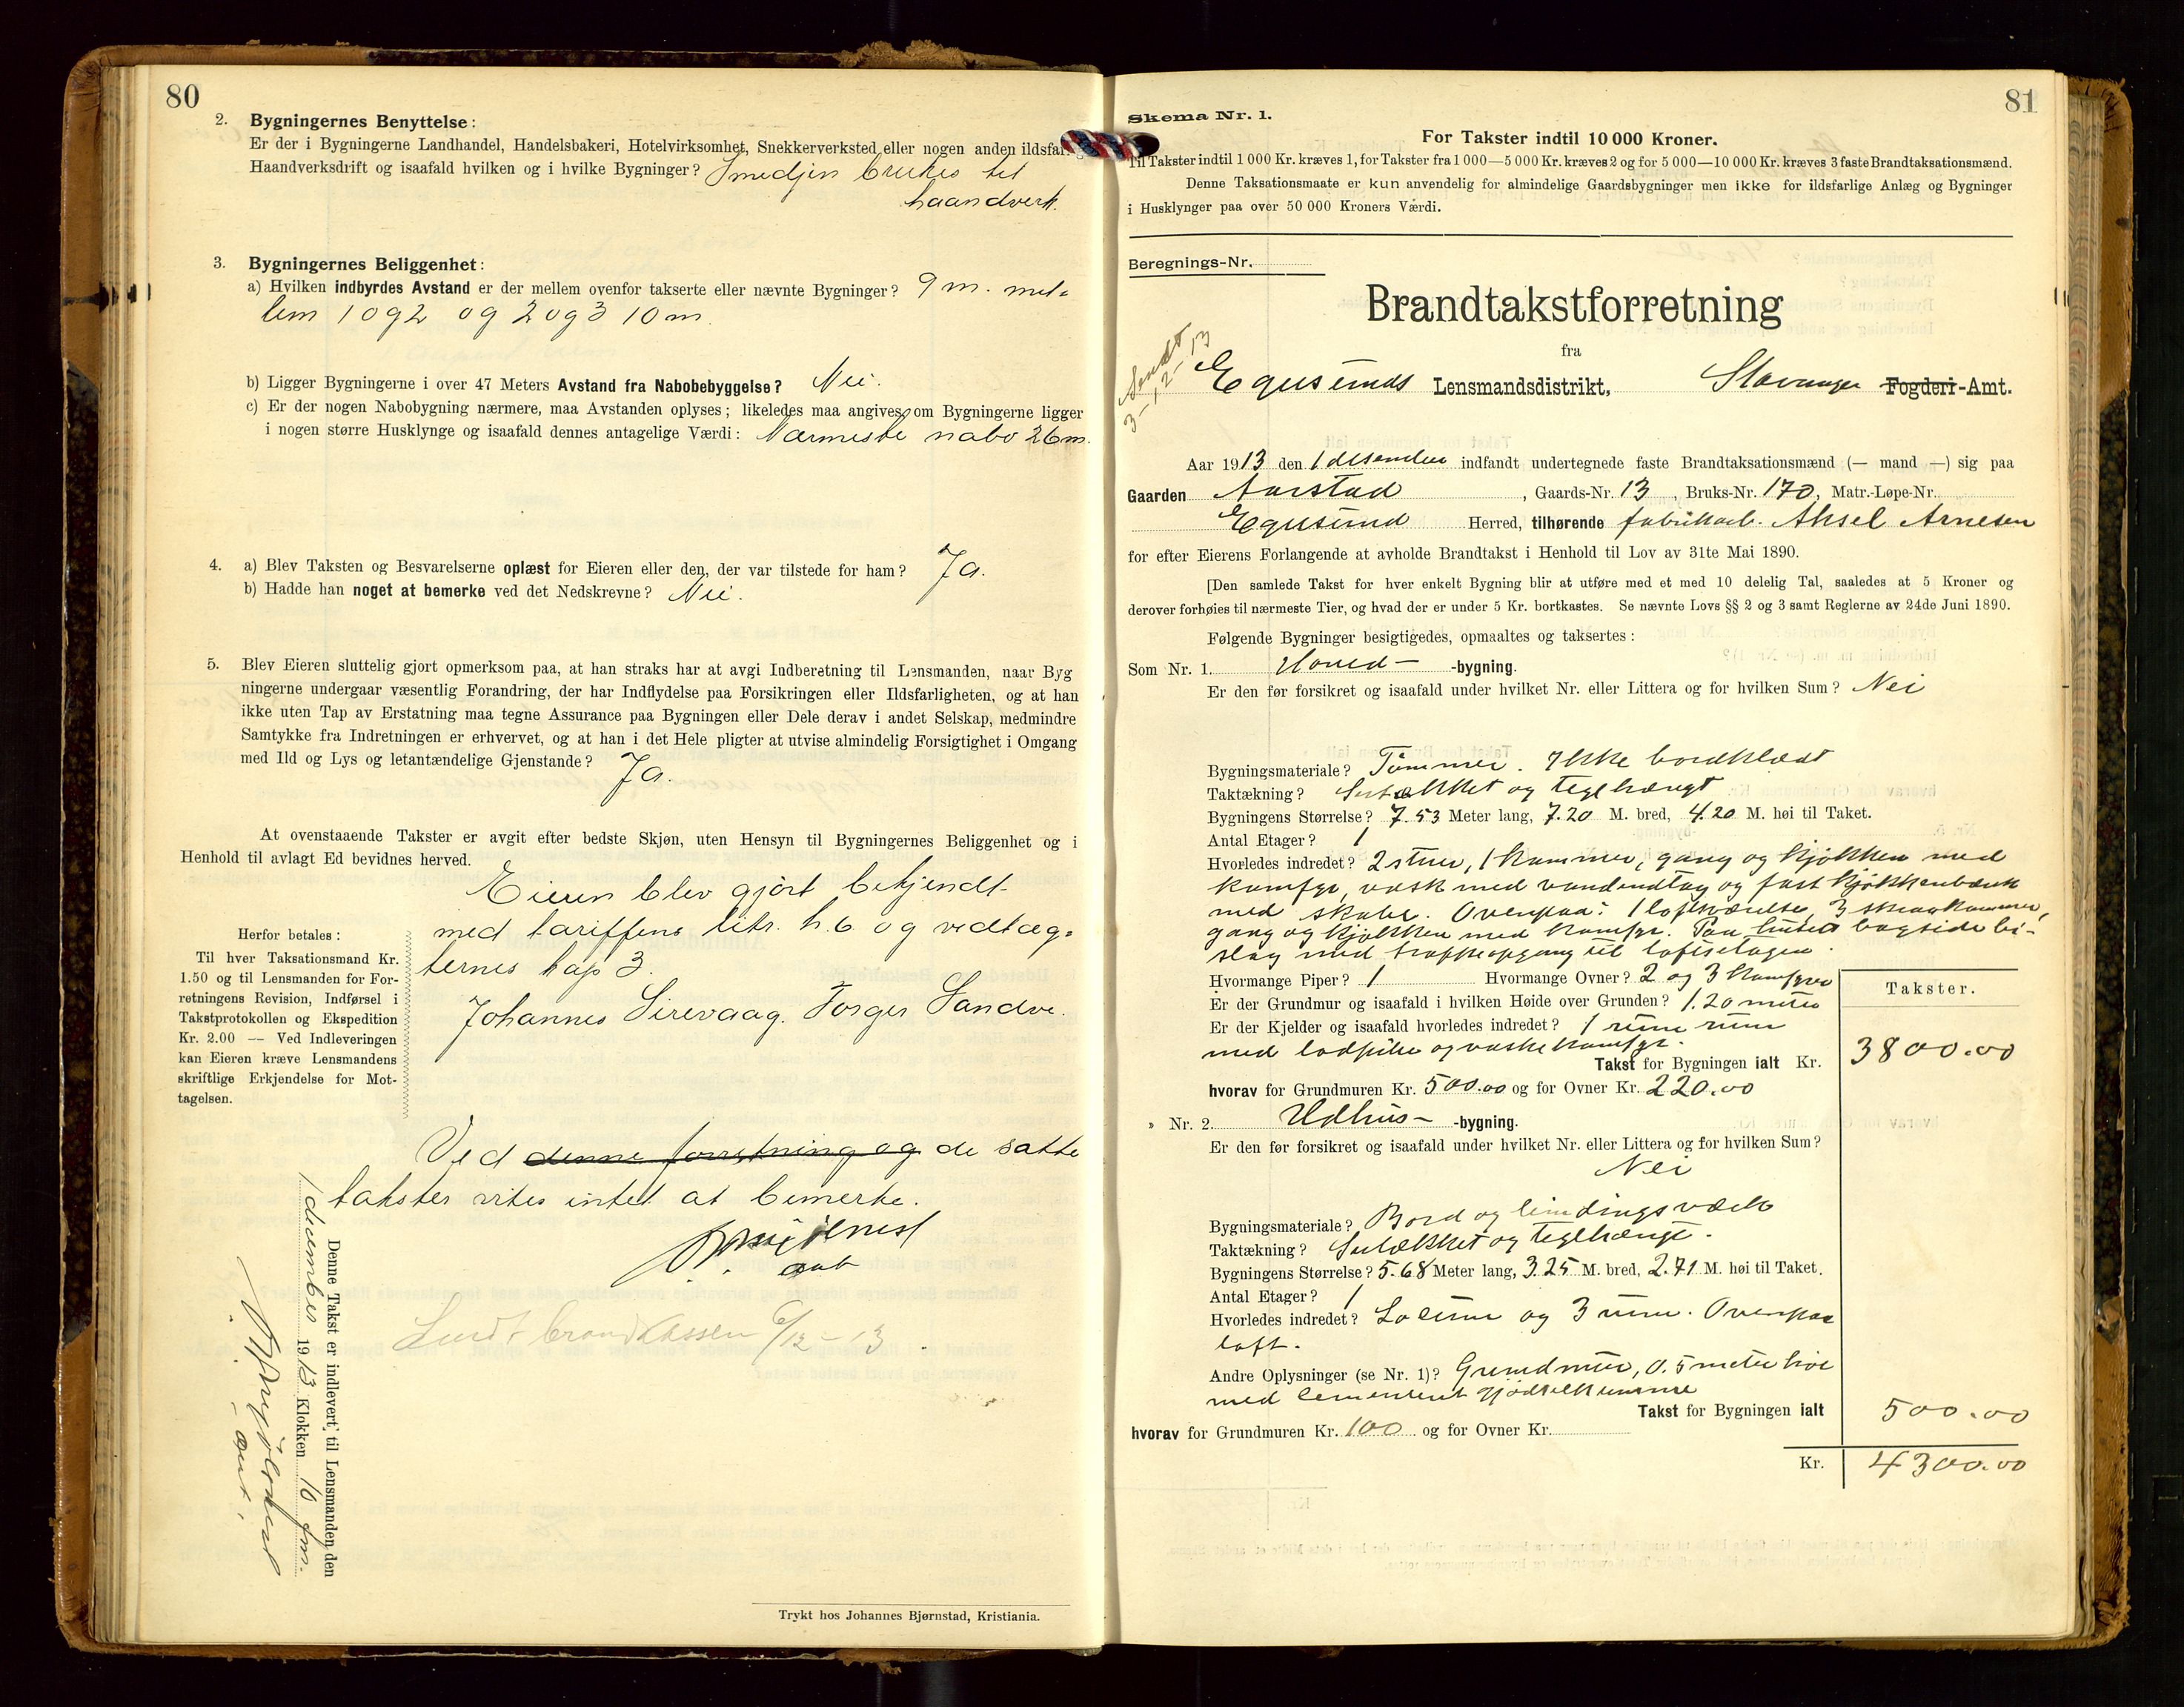 80
2. Bygningernes Benyttelse:
Er der i Bygningerne Landhandel, Handelsbakeri, Hotelvirksomhet, Snekkerverksted eller nogen anden ildsfar-
Haandverksdrift og isaafald hvilken og i hvilke Bygninger? Smedjen brukes til
haandverk.
3. Bygningernes Beliggenhet:
a) Hvilken indbyrdes Avstand er der mellem ovenfor takserte eller nævnte Bygninger? 9 m. mel-
lem 1 og 2 og 2 og 3 10 m.
b) Ligger Bygningerne i over 47 Meters Avstand fra Nabobebyggelse? Nei.
c) Er der nogen Nabobygning nærmere, maa Avstanden oplyses; likeledes maa angives om Bygningerne ligger
i nogen større Husklynge og isaafald dennes antagelige Værdi: Nærmeste nabo 26 m.
4. a) Blev Taksten og Besvarelserne oplæst for Eieren eller den, der var tilstede for ham? Ja.
b) Hadde han noget at bemerke ved det Nedskrevne? Nei.
5. Blev Eieren sluttelig gjort opmerksom paa, at han straks har at avgi Indberetning til Lensmanden, naar Byg
ningerne undergaar væsentlig Forandring, der har Indflydelse paa Forsikringen eller Ildsfarligheten, og at han
ikke uten Tap av Erstatning maa tegne Assurance paa Bygningen eller Dele derav i andet Selskap, medmindre
Samtykke fra Indretningen er erhvervet, og at han i det Hele pligter at utvise almindelig Forsigtighet i Omgang
med Ild og Lys og letantændelige Gjenstande? Ja.
At ovenstaaende Takster er avgit efter bedste Skjøn, uten Hensyn til Bygningernes Beliggenhet og i
Henhold til avlagt Ed bevidnes herved.
Eieren blev gjort bekjendt
med tariffens litr. h. 6 og vedtæg-
ternes kap 3.
Johannes Sirevaag. Torger Sandve.
Herfor betales:
Til hver Taksationsmand Kr.
1.50 og til Lensmanden for For-
retningens Revision, Indførsel i
Takstprotokollen og Ekspedition
Kr. 2.00 — Ved Indleveringen
kan Eieren kræve Lensmandens
skriftlige Erkjendelse for Mot-
tagelsen.
Ved denne forretning og de satte
takster vites intet at bemerke.
Sendt brandkassen 6/12-13.
Denne Takst er indlevert til Lensmanden den
1 december 1913 Klokken 10 fm.
Trykt hos Johannes Bjørnstad, Kristiania.
81
Skema Nr. 1.
For Takster indtil 10 000 Kroner.
Til Takster indtil 1 000 Kr. kræves 1, for Takster fra 1 000—5 000 Kr. kræves 2 og for 5 000—10 000 Kr. kræves 3 faste Brandtaksationsmænd.
Denne Taksationsmaate er kun anvendelig for almindelige Gaardsbygninger men ikke for ildsfarlige Anlæg og Bygninger
i Husklynger paa over 50 000 Kroners Værdi.
Beregnings-Nr.
Brandtakstforretning
fra
Sendt
3-12-13
Egersunds Lensmandsdistrikt, Stavanger Fogderi-Amt.
Aar 1913 den 1 desember indfandt undertegnede faste Brandtaksationsmænd (— mand —) sig paa
Gaarden Aarstad, Gaards-Nr. 13, Bruks-Nr. 170, Matr.-Løpe-Nr.
Egersund Herred, tilhørende fabrikarb. Aksel Arnesen
for efter Eierens Forlangende at avholde Brandtakst i Henhold til Lov av 31te Mai 1890.
[Den samlede Takst for hver enkelt Bygning blir at utføre med et med 10 delelig Tal, saaledes at 5 Kroner og
derover forhøies til nærmeste Tier, og hvad der er under 5 Kr. bortkastes. Se nævnte Lovs §§ 2 og 3 samt Reglerne av 24de Juni 1890.
Følgende Bygninger besigtigedes, opmaaltes og taksertes:
Som Nr. 1. Hoved- -bygning.
Er den før forsikret og isaafald under hvilket Nr. eller Littera og for hvilken Sum? Nei
Bygningsmateriale? Tømmer. Ikke bordklædt
Taktækning? Sutækket og teglhængt
Bygningens Størrelse? 7.53 Meter lang, 7.20 M. bred, 4.20 M. høi til Taket.
Antal Etager? 1
Hvorledes indredet? 2 stuer, 1 kammer, gang og kjøkken med
komfyr, vask med vandindtag og fast kjøkkenbænk
med skabe. Ovenpaa: 1 loftsværelse, 3 skraakammer,
gang og kjøkken med komfyr. Paa husets bagside bi-
slag med trappeopgang til loftsetagen.
Hvormange Piper? 1 Hvormange Ovner? 2 og 3 komfyrer
Takster.
Er der Grundmur og isaafald i hvilken Høide over Grunden? 1.20 meter
Er der Kjelder og isaafald hvorledes indredet? 1 rum
med lodpipe og vaskekomfyr.
Takst for Bygningen ialt Kr. 3800.00
hvorav for Grundmuren Kr. 500.00 og for Ovner Kr. 220.00
» Nr. 2. Udhus- -bygning.
Er den før forsikret og isaafald under hvilket Nr. eller Littera og for hvilken Sum?
Nei
Bygningsmateriale? Bord og bindingsværk
Taktækning? Sutækket og teglhængt.
Bygningens Størrelse? 5.68 Meter lang, 3.25 M. bred, 2.71 M. høi til Taket.
Antal Etager? 1
Hvorledes indredet? Locum og 3 rum. Ovenpaa
loft.
Andre Oplysninger (se Nr. 1)? Grundmur, 0.5 meter høi
med cementeret gjødselkumme
Takst for Bygningen ialt 500.00
hvorav for Grundmuren Kr. 100 og for Ovner Kr.
Kr. 4300.00